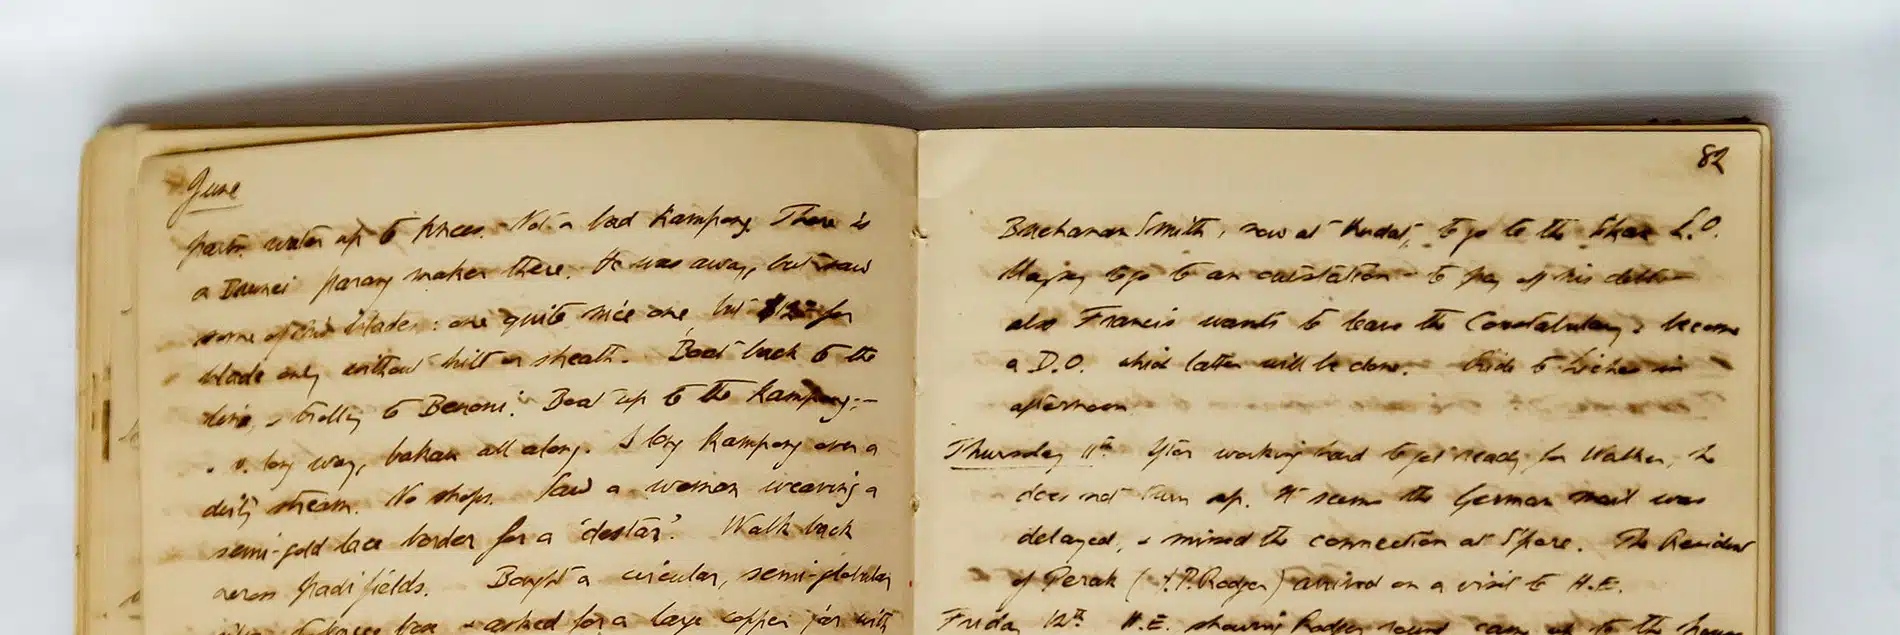 June
water up to knees. Not a bad Kampong. There is
a Brunei parang maker there. He was away, but saw
some of his blades: one quite nice one but $12 for
blade only without hilt or sheath. Boat back to the
line, & trolley to Benoni. Boat up to the Kampong:–
a v. long way, bakau all along. A long Kampong over a
dirty stream. No shops. Saw a woman weaving a
semi-gold lace border for a 'destar'. Walk back
across padi fields. Bought a circular, semi-globular
tobacco box & asked for a large copper jar with
82
Buchanan Smith, now at Kudat, to go to the L.O.
to go to an outstation – to pay off his debts –
also Francis wants to leave the Constabulary & become
a D.O. which latter will be done. Ride to in
afternoon.
Thursday 11th After working hard to get ready for Walker, he
does not turn up. It seems the German mail was
delayed, & missed the connection at S'pore. The Resident
of Perak (J.P. Rodger) arrived on a visit to H.E.
Friday 12th H.E. showing Rodger round came up to the house